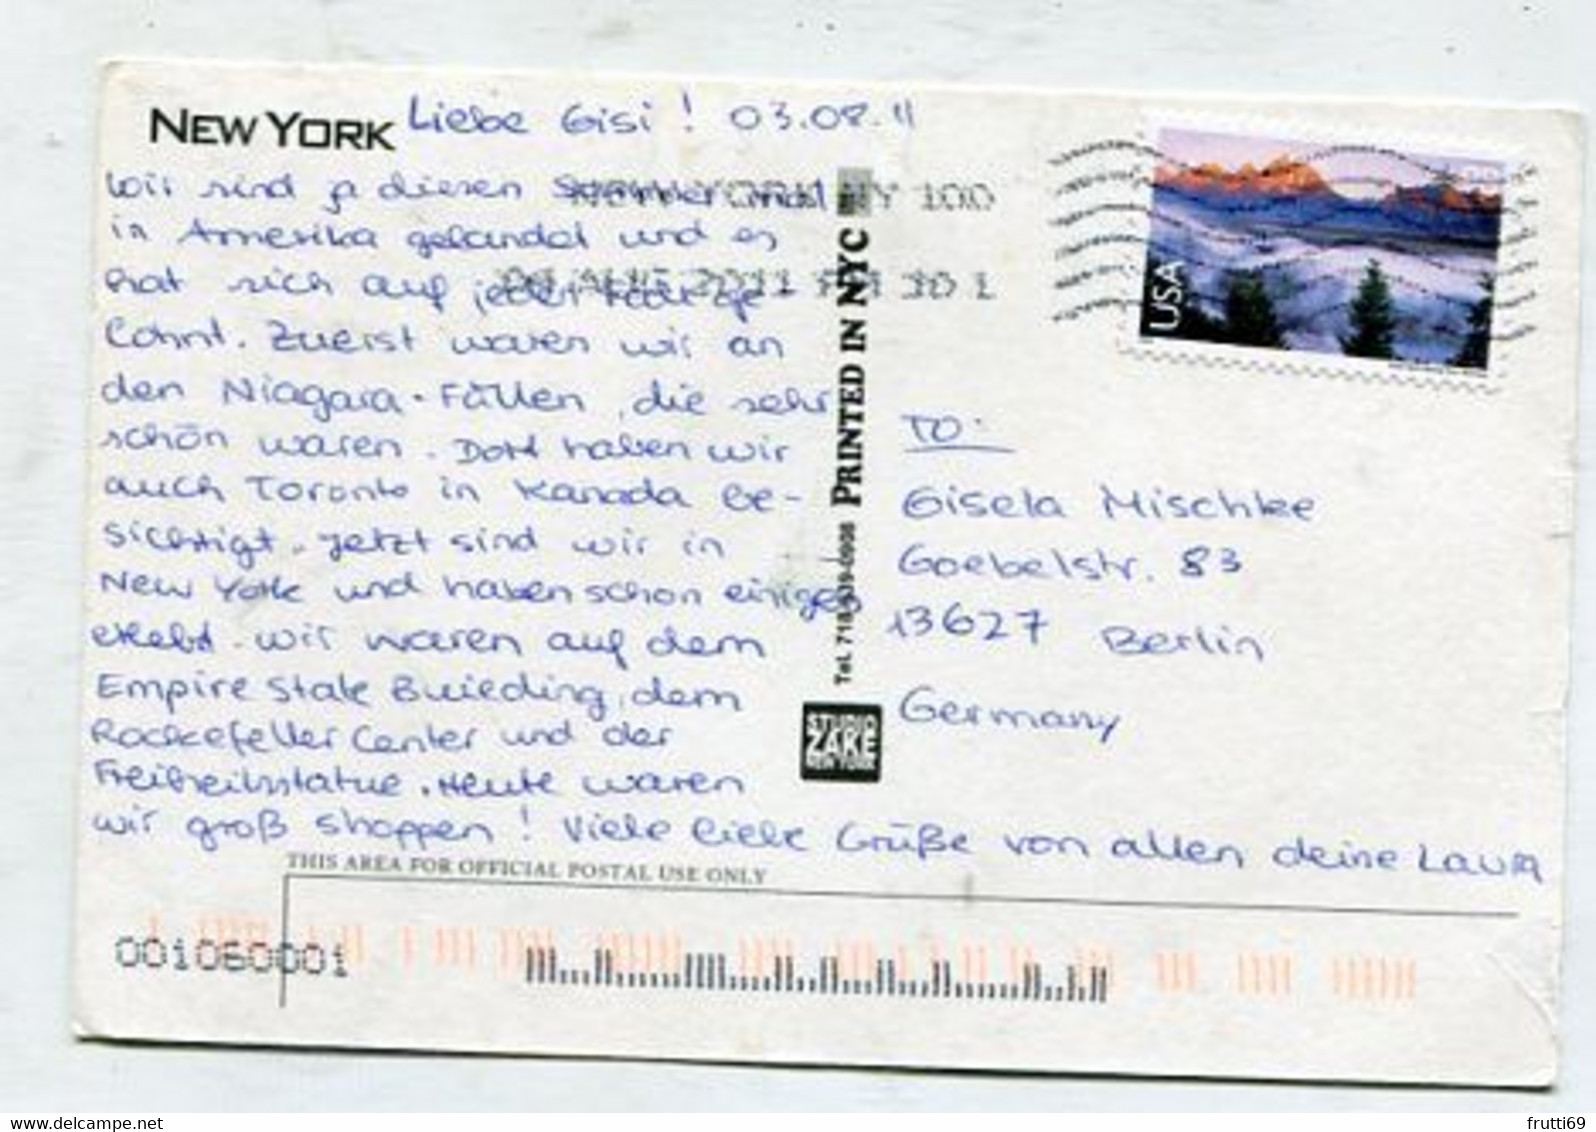 NEW YORK
Liebe Gisi! 03.08.11
Wir sind ja diesen Sommer mal
in Amerika gelandet und es
hat sich auf jeden Fall ge-
lohnt. Zuerst waren wir an
den Niagara-Fällen, die sehr
schön waren. Dort haben wir
auch Toronto in Kanada be-
sichtigt. Jetzt sind wir in
New York und haben schon einiges
erlebt. Wir waren auf dem
Empire State Building, dem
Rockefeller Center und der
Freiheitsstatue. Heute waren
wir groß shoppen! Viele liebe Grüße von allen deine Laura
NY 100
2011 PM 10 L
USA
PRINTED IN NYC
Tel. 718
STUDIO
ZAKE
NEW YORK
TO:
Gisela Mischke
Goebelstr. 83
13627 Berlin
Germany
THIS AREA FOR OFFICIAL POSTAL USE ONLY
001060001
delcampe.net
frutti69